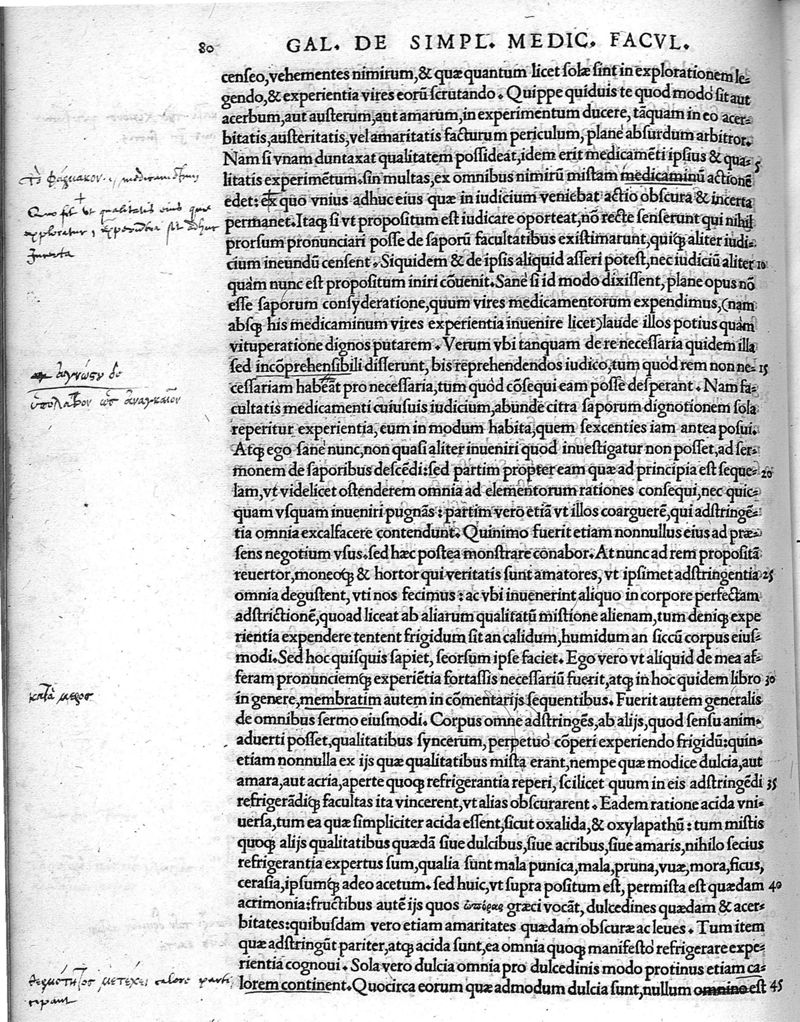 80 GAL. DE SIMPL. MEDIC. FACVL.
censeo,vehementes nimirum,& quæ quantum licet solæ sint in explorationem le=
gendo,& experientia vires eorū scrutando. Quippe quiduis te quod modo sit aut
acerbum,aut austerum,aut amarum,in experimentum ducere, tāquam in eo acer=
bitatis,austeritatis,vel amaritatis facturum periculum, plane absurdum arbitror.
Nam si vnam duntaxat qualitatem possideat,idem erit medicamēti ipsius & qua= 5
litatis experimētum.sin multas,ex omnibus nimirū mistam medicaminū actionē
τὸ φάρμακον
edet: ex quo vnius adhuc eius quæ in iudicium veniebat actio obscura & incerta
Quo fit ut qualitatis eius quæ
permanet.Itaq; si vt propositum est iudicare oporteat,nō recte senserunt qui nihil
prorsum pronunciari posse de saporū facultatibus existimarunt,quiq; aliter iudi=
incerta
cium ineundū censent. Siquidem & de ipsis aliquid asseri potest,nec iudiciū aliter 10
quàm nunc est propositum iniri cōuenit.Sanè si id modo dixissent, plane opus nō
esse saporum consyderatione,quum vires medicamentorum expendimus,(nam
absq; his medicaminum vires experientia inuenire licet)laude illos potius quàm
vituperatione dignos putarem. Verum vbi tanquam de re necessaria quidem illa
sed incōprehensibili disserunt, bis reprehendendos iudico,tum quòd rem non ne= 15
cessariam habeāt pro necessaria,tum quòd cōsequi eam posse desperant. Nam fa=
ὑπολαβον ὡς ἀναγκαῖον
cultatis medicamenti cuiusuis iudicium,abunde citra saporum dignotionem sola
reperitur experientia, eum in modum habita,quem sexcenties iam antea posui.
Atq; ego sanè nunc,non quasi aliter inueniri quod inuestigatur non posset,ad ser=
monem de saporibus descēdi:sed partim propter eam quæ ad principia est seque= 20
lam,vt videlicet ostenderem omnia ad elementorum rationes consequi,nec quic=
quam vsquam inueniri pugnās: partim vero etiā vt illos coarguerē,qui adstringē=
tia omnia excalfacere contendunt. Quinimo fuerit etiam nonnullus eius ad præ=
sens negotium vsus.sed hæc postea monstrare conabor. At nunc ad rem propositā
reuertor,moneoq; & hortor qui veritatis sunt amatores, vt ipsimet adstringentia 25
omnia degustent, vti nos fecimus: ac vbi inuenerint aliquo in corpore perfectam
adstrictionē,quoad liceat ab aliarum qualitatū mistione alienam,tum deniq; expe
rientia expendere tentent frigidum sit an calidum,humidum an siccū corpus eius=
modi. Sed hoc quisquis sapiet, seorsum ipse faciet. Ego vero vt aliquid de mea af=
feram pronunciemq; experiētia fortassis necessariū fuerit,atq; in hoc quidem libro 30
κατὰ μερος
in genere,membratim autem in cōmentarijs sequentibus. Fuerit autem generalis
de omnibus sermo eiusmodi. Corpus omne adstringēs,ab alijs,quod sensu anim=
aduerti posset,qualitatibus syncerum,perpetuò cōperi experiendo frigidū:quin=
etiam nonnulla ex ijs quæ qualitatibus mista erant,nempe quæ modice dulcia,aut
amara,aut acria,aperte quoq; refrigerantia reperi, scilicet quum in eis adstringēdi 35
refrigerādiq; facultas ita vincerent,vt alias obscurarent. Eadem ratione acida vni=
uersa,tum ea quæ simpliciter acida essent,sicut oxalida,& oxylapathū: tum mistis
quoq; alijs qualitatibus quædā siue dulcibus,siue acribus,siue amaris,nihilo secius
refrigerantia expertus sum,qualia sunt mala punica,mala,pruna,vuæ,mora,ficus,
cerasia,ipsumq; adeo acetum. sed huic,vt supra positum est, permista est quædam 40
acrimonia:fructibus autē ijs quos ὀπώρας græci vocāt, dulcedines quædam & acer=
bitates:quibusdam vero etiam amaritates quædam obscuræ ac leues. Tum item
quæ adstringūt pariter,atq; acida sunt,ea omnia quoq; manifestò refrigerare expe=
rientia cognoui. Sola vero dulcia omnia pro dulcedinis modo protinus etiam ca=
θερμότητος μετέχει calore parti
lorem continent.Quocirca eorum quæ admodum dulcia sunt,nullum omnino est 45
cipant